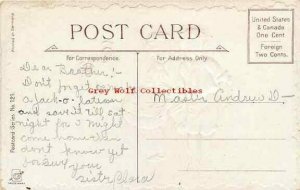 POST CARD
United States
& Canada
One Cent
Foreign
Two Cents.
For Correspondence
For Address Only
Printed in Germany
Postcard Series No. 181
Dear Brother:-
Don't forget to
a Jack-o-lantern
and save it till Sat
night for I might
come home. I
don't know yet
for sure
your
sister Clara
Master Andrew D-
Grey Wolf Collectables .com